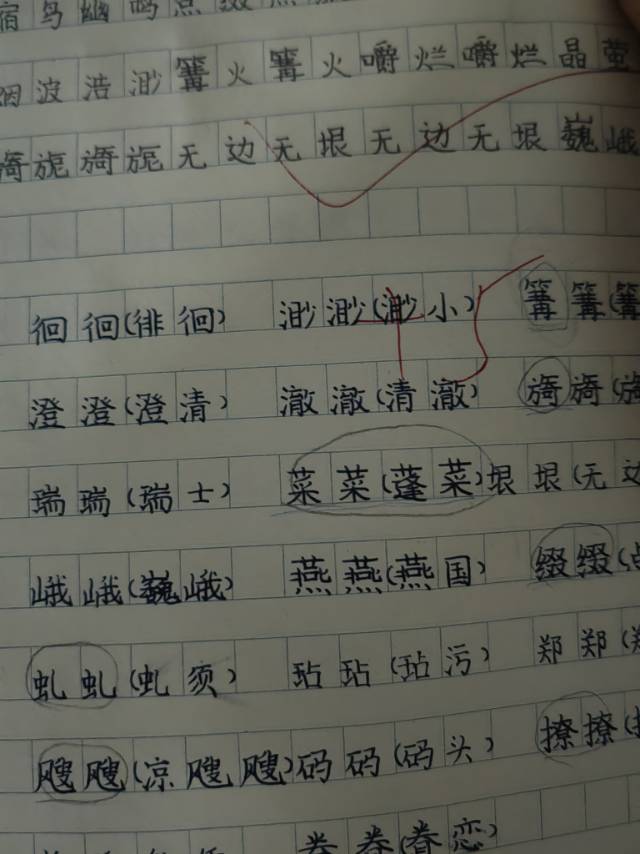 宿鸟幽鸣点缀点
烟波浩渺篝火篝火嚼烂嚼烂晶萤
旖旎旖旎无边无垠无边无垠巍峨
徊徊(徘徊) 渺渺(渺小) 篝篝(篝
澄澄(澄清) 澈澈(清澈) 旖旖(旖
瑞瑞(瑞士) 菜菜(蓬菜)垠垠(无边
峨峨(巍峨) 燕燕(燕国) 缀缀(点
虬虬(虬须) 玷玷(玷污) 郑郑(郑
飕飕(凉飕飕)码码(码头) 撩撩(
眷眷(眷恋)